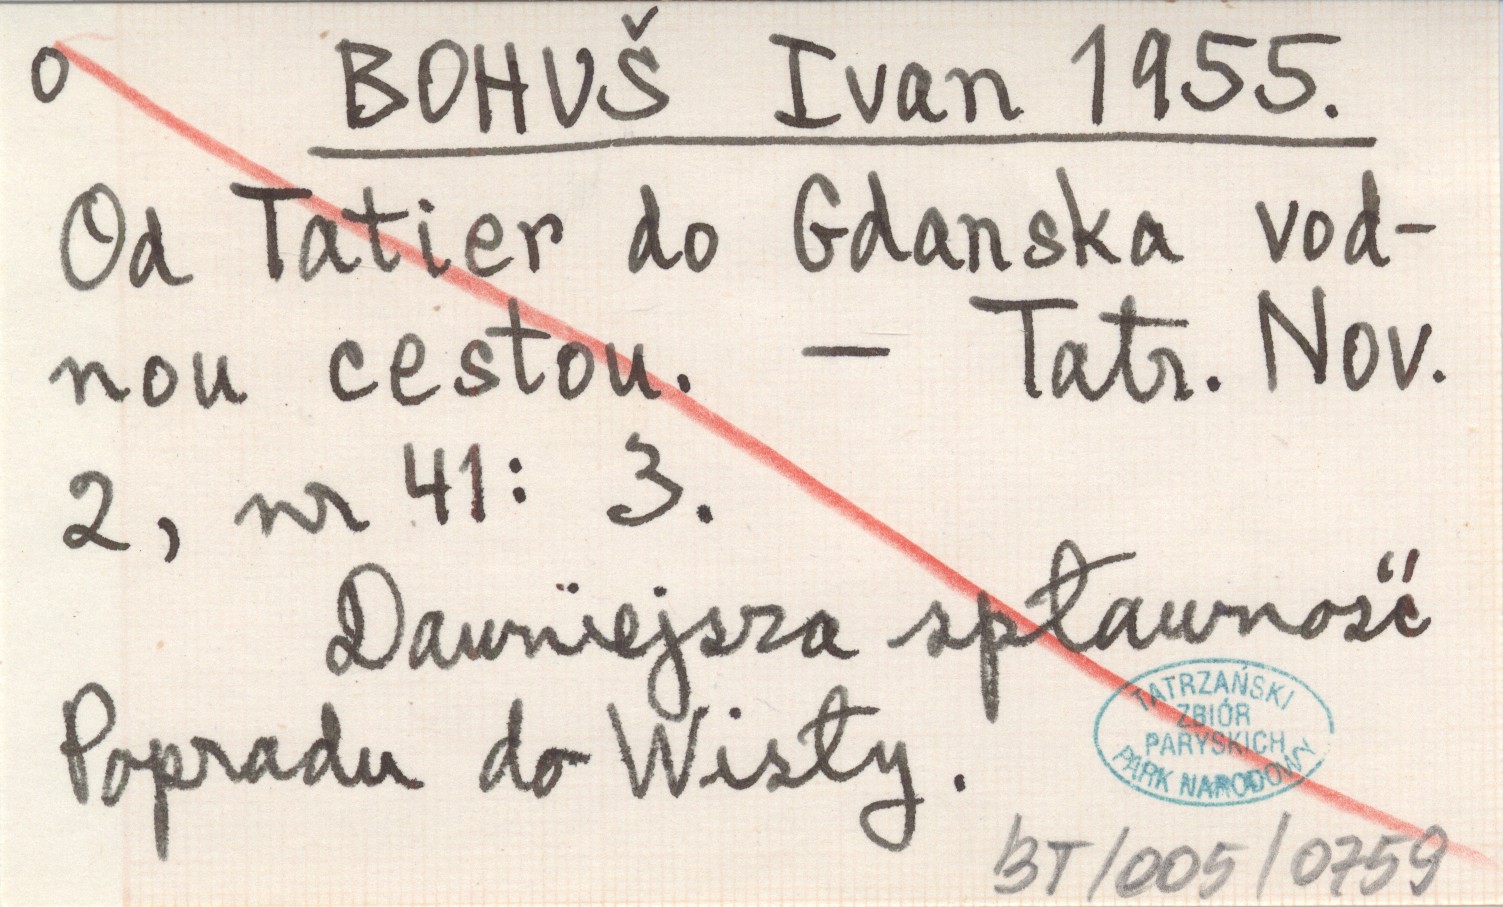 o BOHUŠ Ivan 1955.
Od Tatier do Gdanska vod-
nou cestou. — Tatr. Nov.
2, nr 41: 3.
Dawniejsza spławność
Popradu do Wisły.
TATRZAŃSKI
ZBIÓR
PARYSKICH
PARK NARODOWY
BT/005/0759